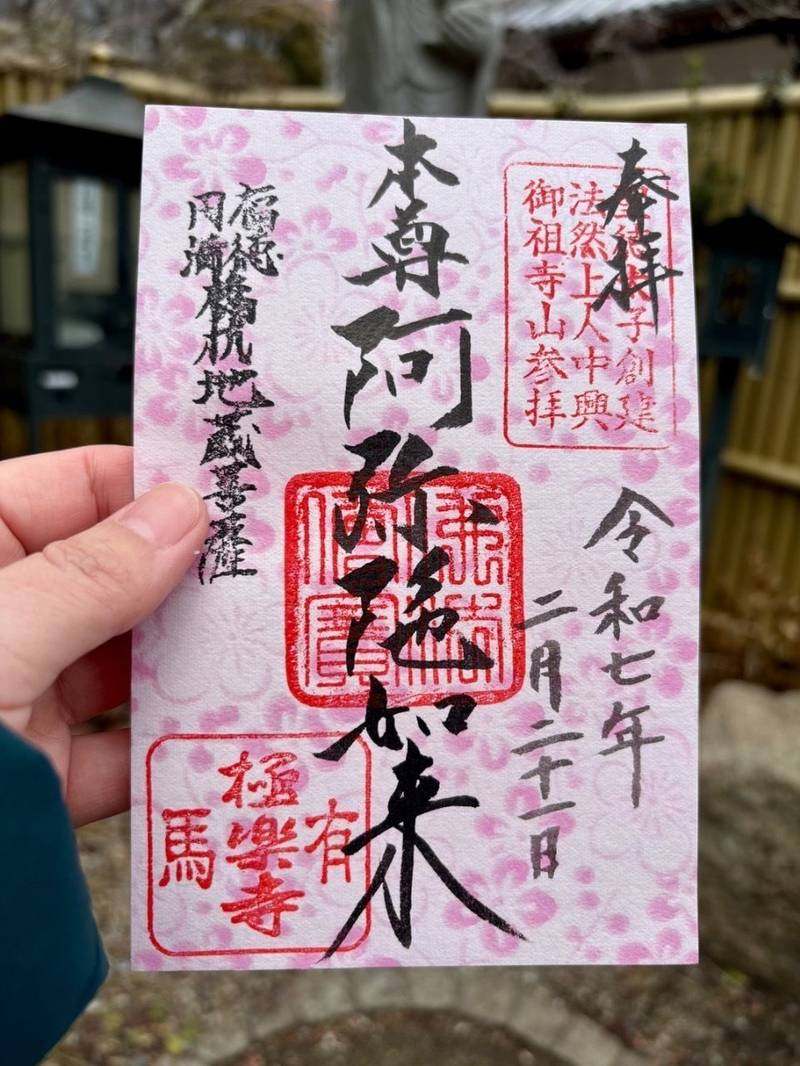 奉拝
聖徳太子創建
法然上人中興
御祖寺山参拝
令和七年
二月二十一日
本尊阿弥陀如来
有
極楽寺
馬
福徳
円満
橋杭地蔵菩薩